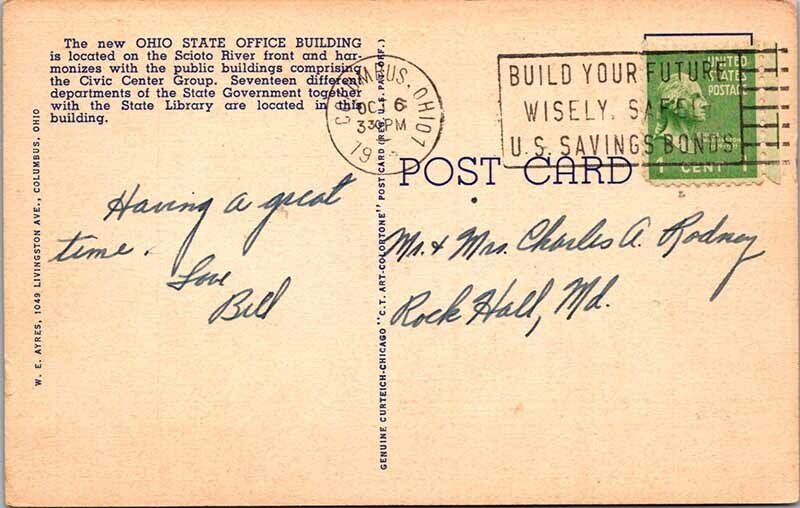 The new OHIO STATE OFFICE BUILDING
is located on the Scioto River front and har-
monizes with the public buildings comprising
the Civic Center Group. Seventeen different
departments of the State Government together
with the State Library are located in this
building.
W. E. AYRES, 1049 LIVINGSTON AVE., COLUMBUS, OHIO
COLUMBUS, OHIO 1
OCT 6
330 PM
19
BUILD YOUR FUTURE
WISELY, SAFELY
U.S. SAVINGS BONDS
UNITED
STATES
POSTAGE
1 CENT 1
POST CARD
GENUINE CURTEICH-CHICAGO "C.T. ART-COLORTONE" POST CARD (REG. U.S. PAT. OFF.)
Having a great
time.
Love
Bill
Mr. & Mrs. Charles A. Rodney
Rock Hall, Md.